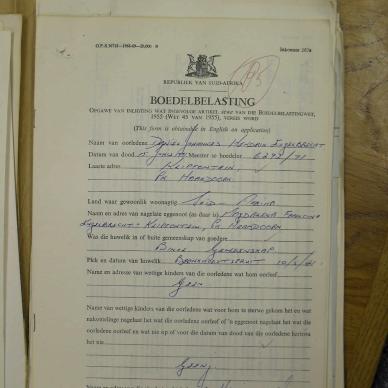 G.P.-S. — 1968-69 — 20,000 S
Inkomste 267A
REPUBLIEK VAN SUID-AFRIKA
BOEDELBELASTING
OPGAWE VAN INLIGTING WAT INGEVOLGE ARTIKEL sewe VAN DIE BOEDELBELASTINGWET,
1955 (WET 45 VAN 1955), VEREIS WORD
(This form is obtainable in English on application)
Naam van oorledene Johannes Hendrik Engelbrecht
Datum van dood Meester se boedelnr. /71
Laaste adres Klipfontein,
PK
Land waar gewoonlik woonagtig Suid-Afrika
Naam en adres van nagelate eggenoot (as daar is) Magdalena Francina
Engelbrecht - Klipfontein, PK
Was die huwelik in of buite gemeenskap van goedere
Binne Gemeenskap
Plek en datum van huwelik Bronkhorstspruit
Name en adresse van wettige kinders van die oorledene wat hom oorleef
Geen
Name van wettige kinders van die oorledene wat voor hom te sterwe gekom het en wat
nakomelinge nagelaat het wat die oorledene oorleef of 'n eggenoot nagelaat het wat die
oorledene oorleef en wat nie op of voor die datum van dood van die oorledene hertrou
het nie
Geen